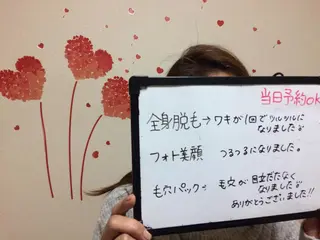 当日予約ok
全身脱も→ワキが1回でツルツルに
なりました
フォト美顔 つるつるになりました。
毛穴パック→ 毛穴が目立たなく
なりました
ありがとうございました!!